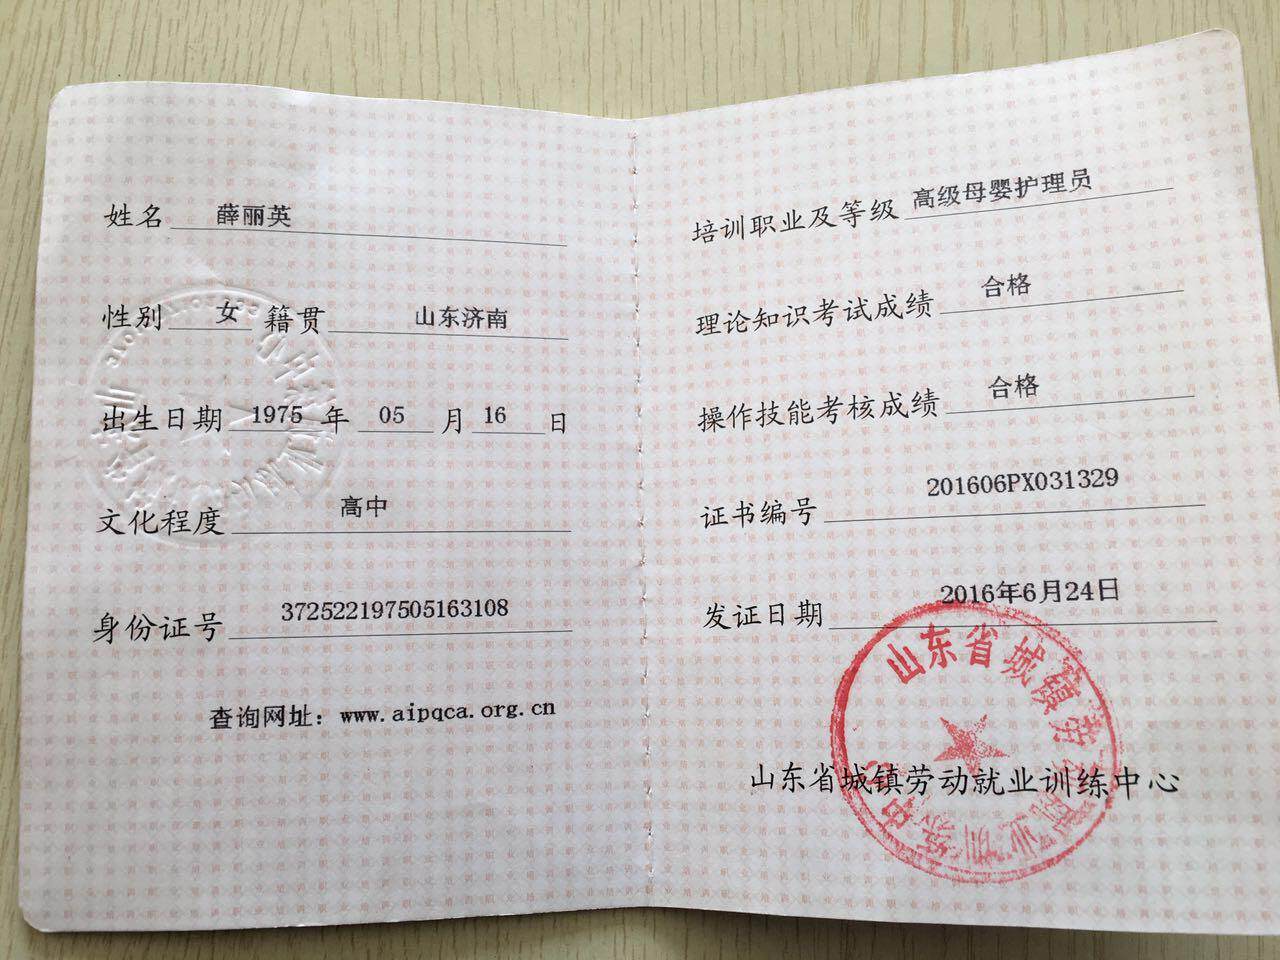 姓名 薛丽英
性别 女 籍贯 山东济南
出生日期 1975 年 05 月 16 日
文化程度 高中
身份证号 372522197505163108
查询网址：www.aipqca.org.cn
培训职业及等级 高级母婴护理员
理论知识考试成绩 合格
操作技能考核成绩 合格
证书编号 201606PX031329
发证日期 2016年6月24日
山东省城镇劳动就业训练中心
山东省城镇劳动就业训练中心